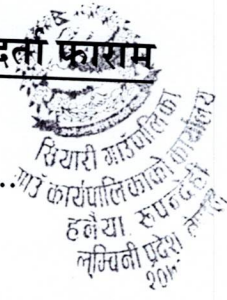 दर्ता फाराम
सियारी गाउँपालिका
गाउँ कार्यपालिकाको कार्यालय
हनैया, रूपन्देही
लुम्बिनी प्रदेश, नेपाल